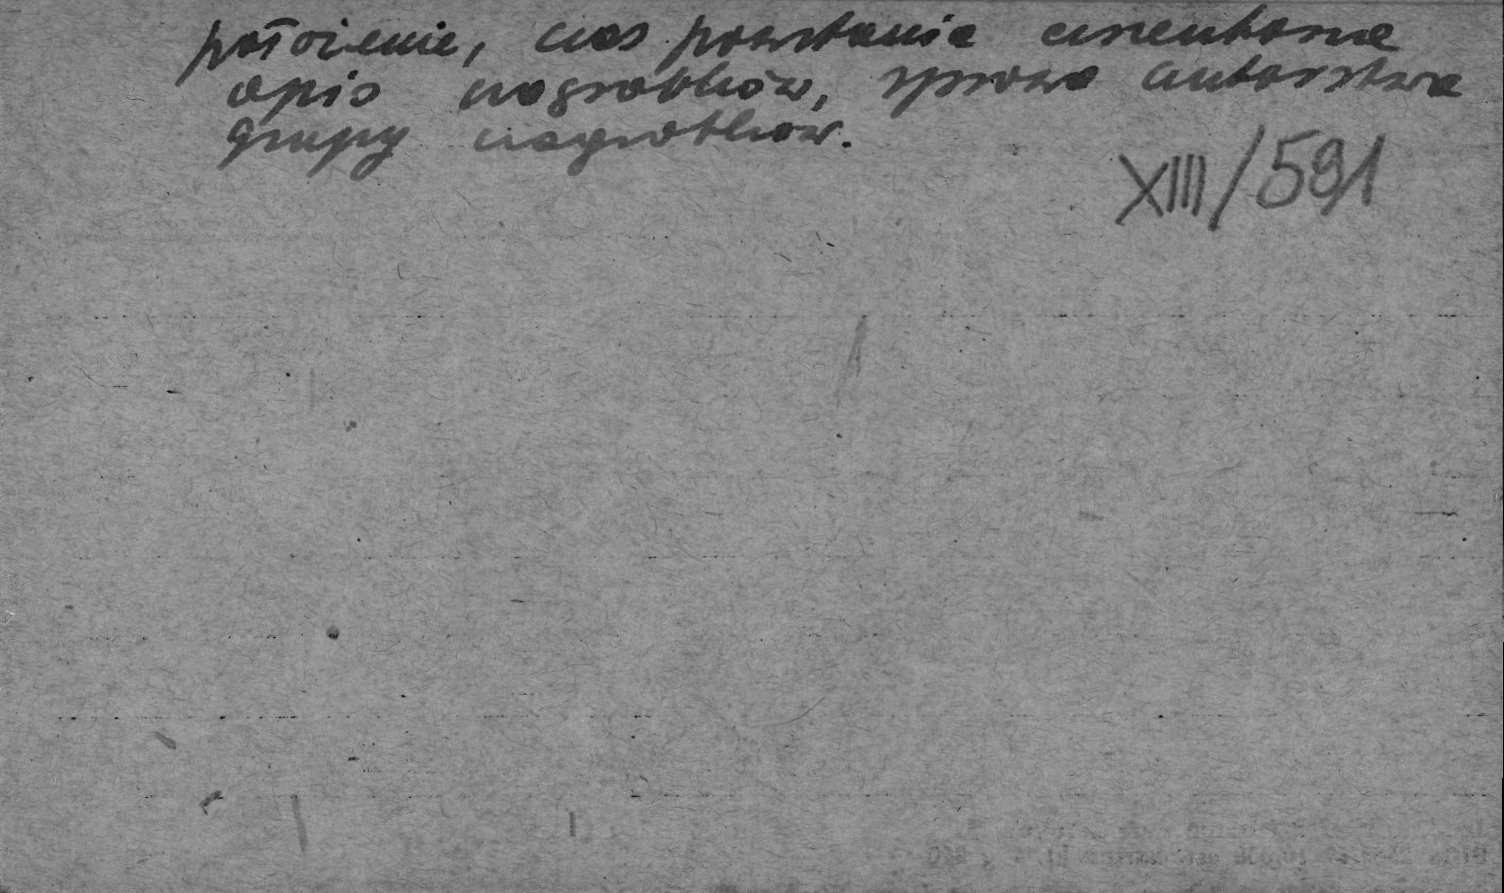 położenie, czas powstania cmentarza
opis nagrobków, sprawa autorstwa
grupy nagrobków.
XIII/591